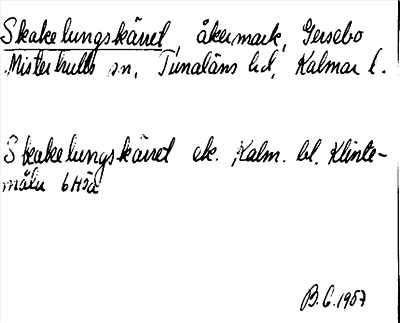 Skakelungskärret, åkermark, Gersebo
Misterhults sn, Tunaläns hd, Kalmar l.
Skakelungskärret ek. Kalm. bl. Klinte-
måla 6H5a
B.G. 1957